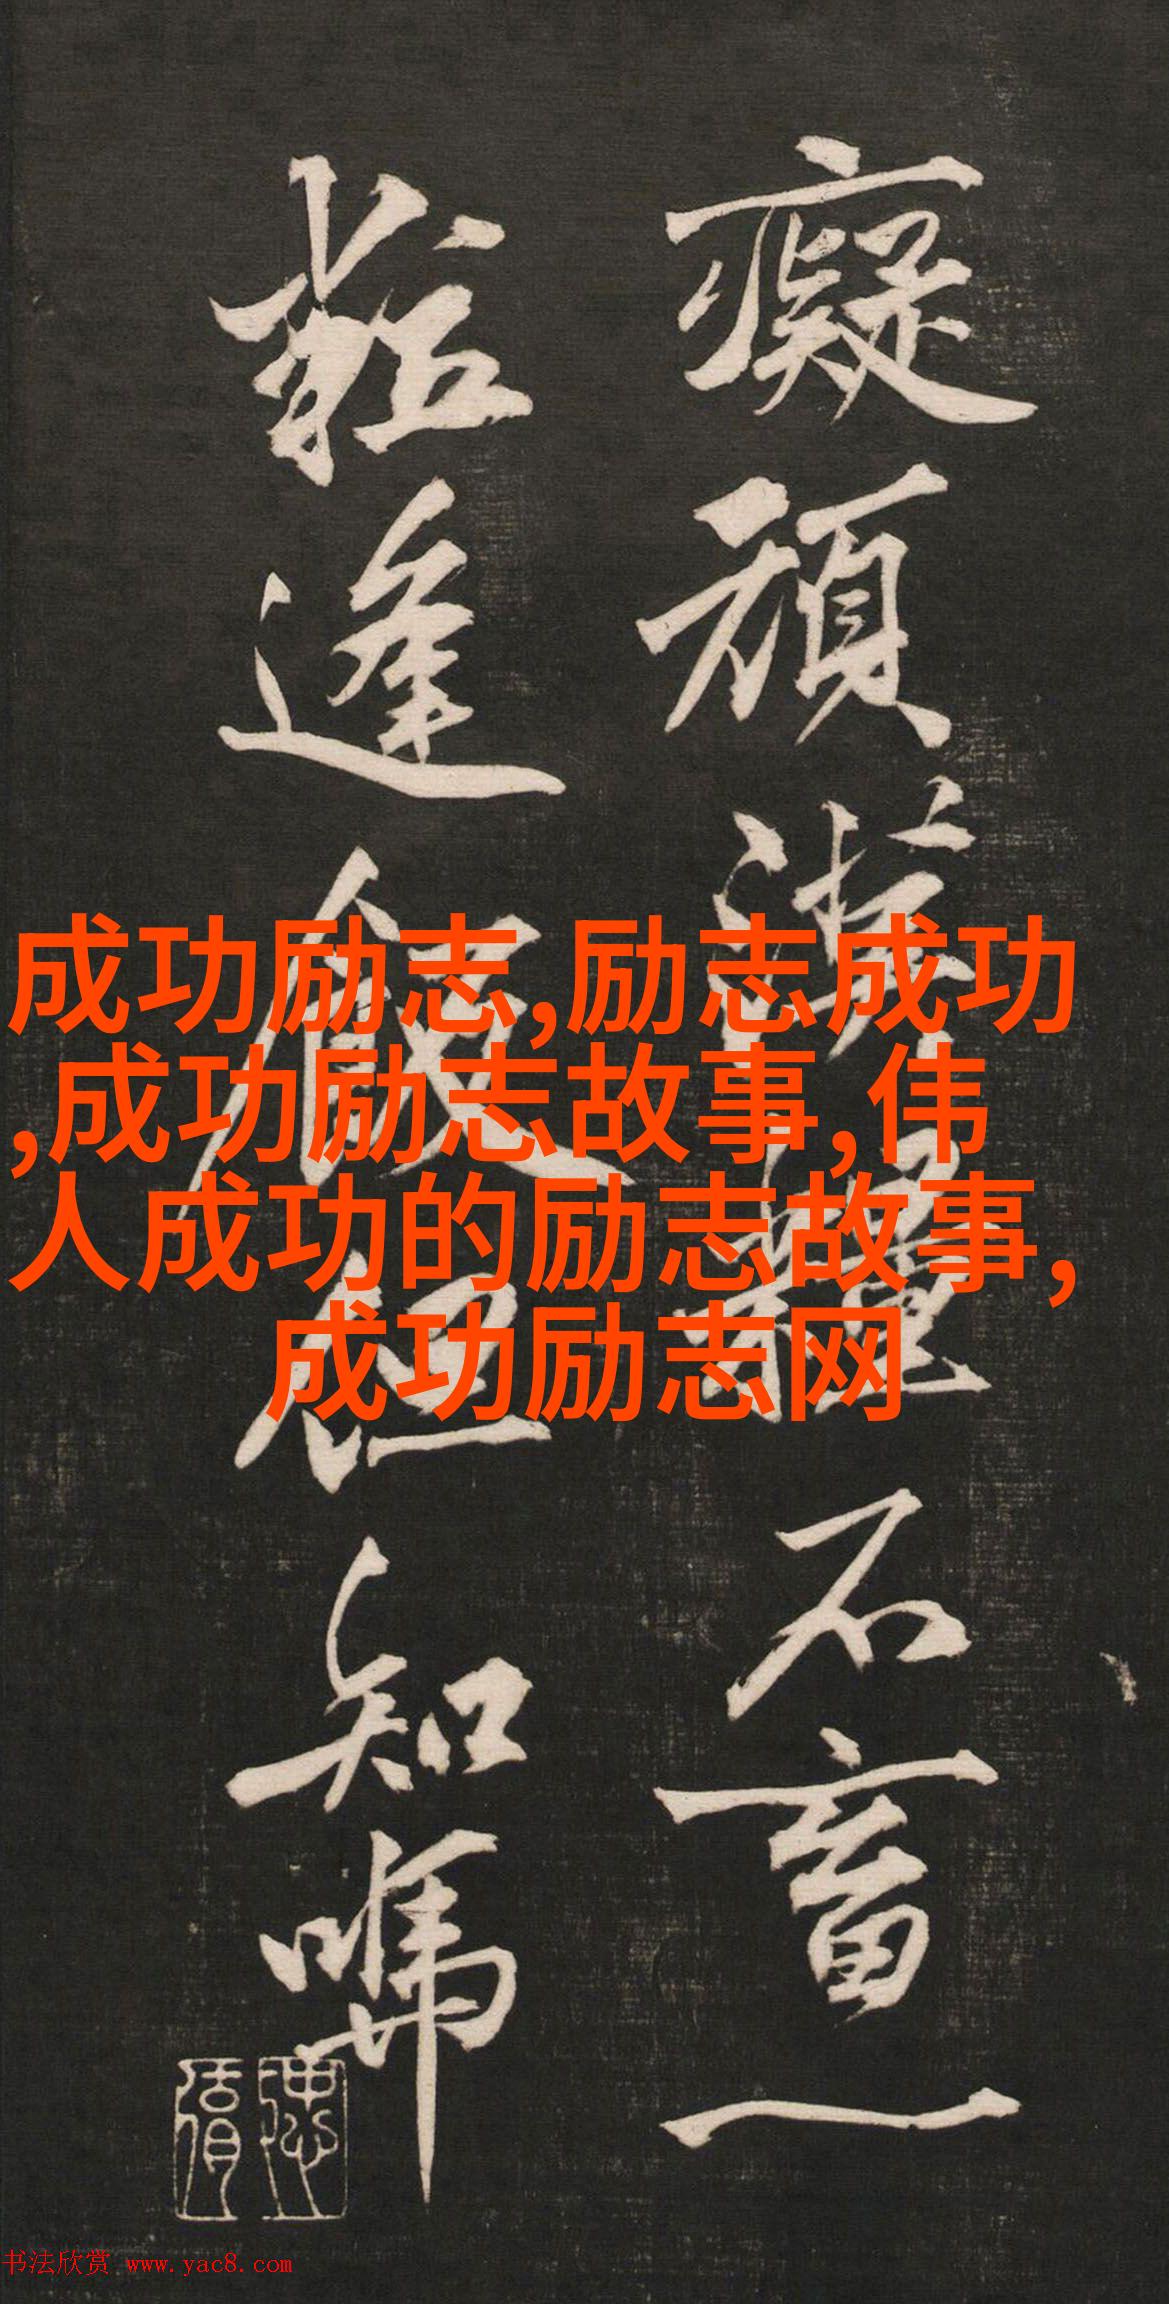 癡頑糧不畜一
粒逢飯但知
成功励志,励志成功
,成功励志故事,伟
人成功的励志故事,
成功励志网
书法欣赏 www.yac8.com